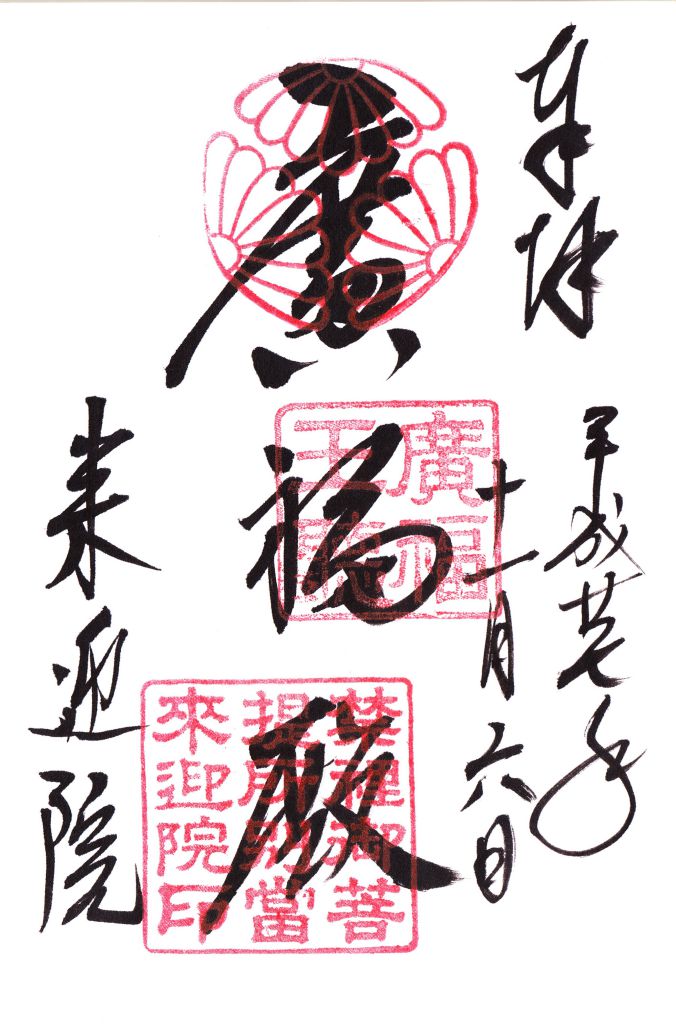 奉拝
平成廿七年
十一月六日
廣福殿
来迎院
廣福
王
禁裡御菩
提所別當
來迎院印